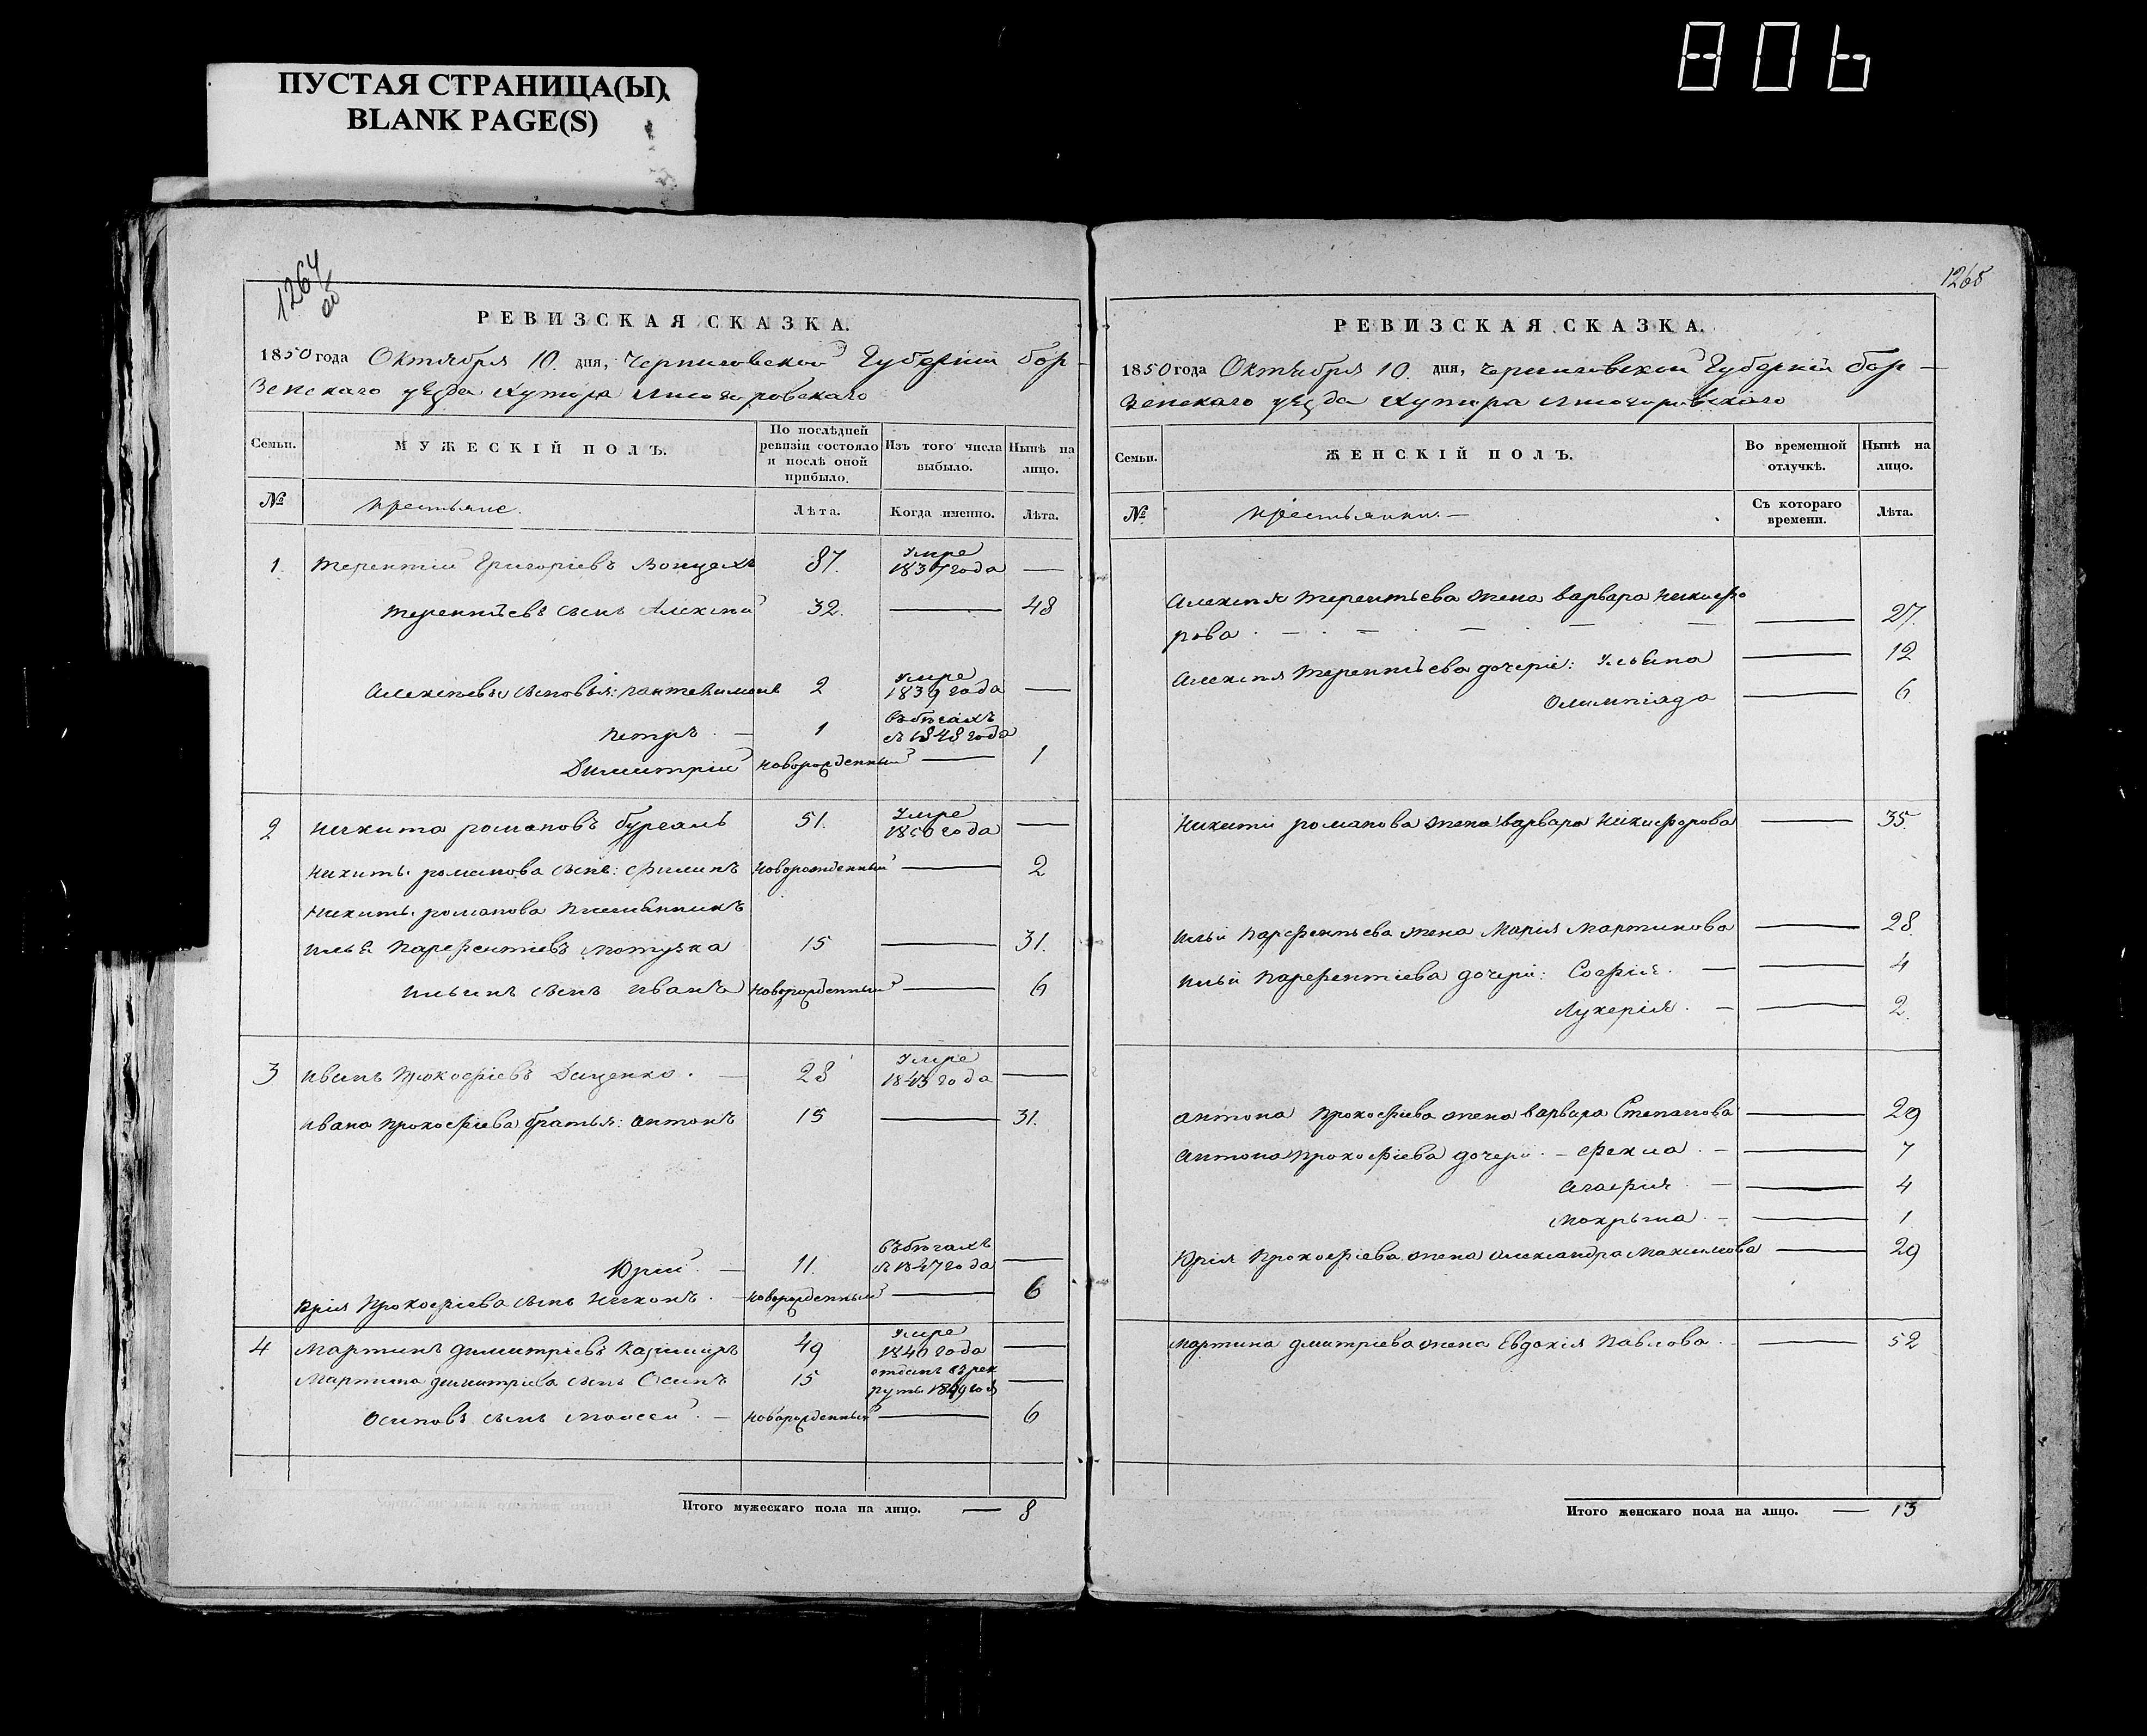 806
ПУСТАЯ СТРАНИЦА(Ы),
BLANK PAGE(S)
1264
об
РЕВИЗСКАЯ СКАЗКА.
1850 года Октября 10. дня, Черниговской Губерніи Бор-
зенскаго уезда Хутора
Семьи. МУЖЕСКІЙ ПОЛЪ. По послѣдней ревизіи состояло и послѣ оной прибыло. Изъ того числа выбыло. Нынѣ на лицо.
№ крестьяне. Лѣта. Когда именно. Лѣта.
1. Терентій Григоріевъ 87. Умре 1837 года —
Терентьевъ сынъ Алексей 32. — 48
Алексеевы сыновья: Пантелимонъ 2 Умре 1839 года —
Петръ. — 1 въ бегахъ съ 1848 года
Димитрій новорожденный — 1
2 Никита романовъ 51. Умре 1850 года —
Никиты романова сынъ: Филипъ Новорожденный — 2
Никиты романова племянникъ
Илья Парфентіевъ 15 — 31.
Ильинъ сынъ иванъ Новорожденный — 6
3 иванъ Прокофіевъ Даценко. — 28 Умре 1843 года —
ивана Прокофіева братья: антонъ 15 — 31.
Юрий. — 11. въ бегахъ съ 1847 года —
Юрія Прокофіева сынъ Никонъ. — новорожденный — 6
4 Мартинъ димитріевъ Казимиръ 49 Умре 1840 года —
Мартина димитріева сынъ Осипъ 15 отданъ въ рекруты 1849 года —
Осиповъ сынъ Моисей. — новорожденный — 6
Итого мужескаго пола на лицо. — 8
1265
РЕВИЗСКАЯ СКАЗКА.
1850 года Октября 10. дня, черниговской Губерніи Бор-
зенскаго уезда Хутора
Семьи. ЖЕНСКІЙ ПОЛЪ. Во временной отлучкѣ. Нынѣ на лицо.
№ крестьянки. — Съ котораго времени. Лѣта.
Алексея Терентьева жена варвара Никифо
рова. — 27.
Алексея Терентьева дочеріе: Ульяна — 12
Олимпіада — 6.
Никиты романова жена варвара Никифорова — 35.
Ильи Парфентьева жена Марія Мартинова — 28.
Ильи Парфентіева дочери: Софія. — 4
Лукерія. — 2.
антона Прокофіева жена варвара Степанова — 29
антона Прокофіева дочери. — Фекла. — 7
Агафія — 4
Мокрына. — 1
Юрія Прокофіева жена александра Максимова — 29
Мартина дмитріева жена Евдокія Павлова. — 52
Итого женскаго пола на лицо. — 13